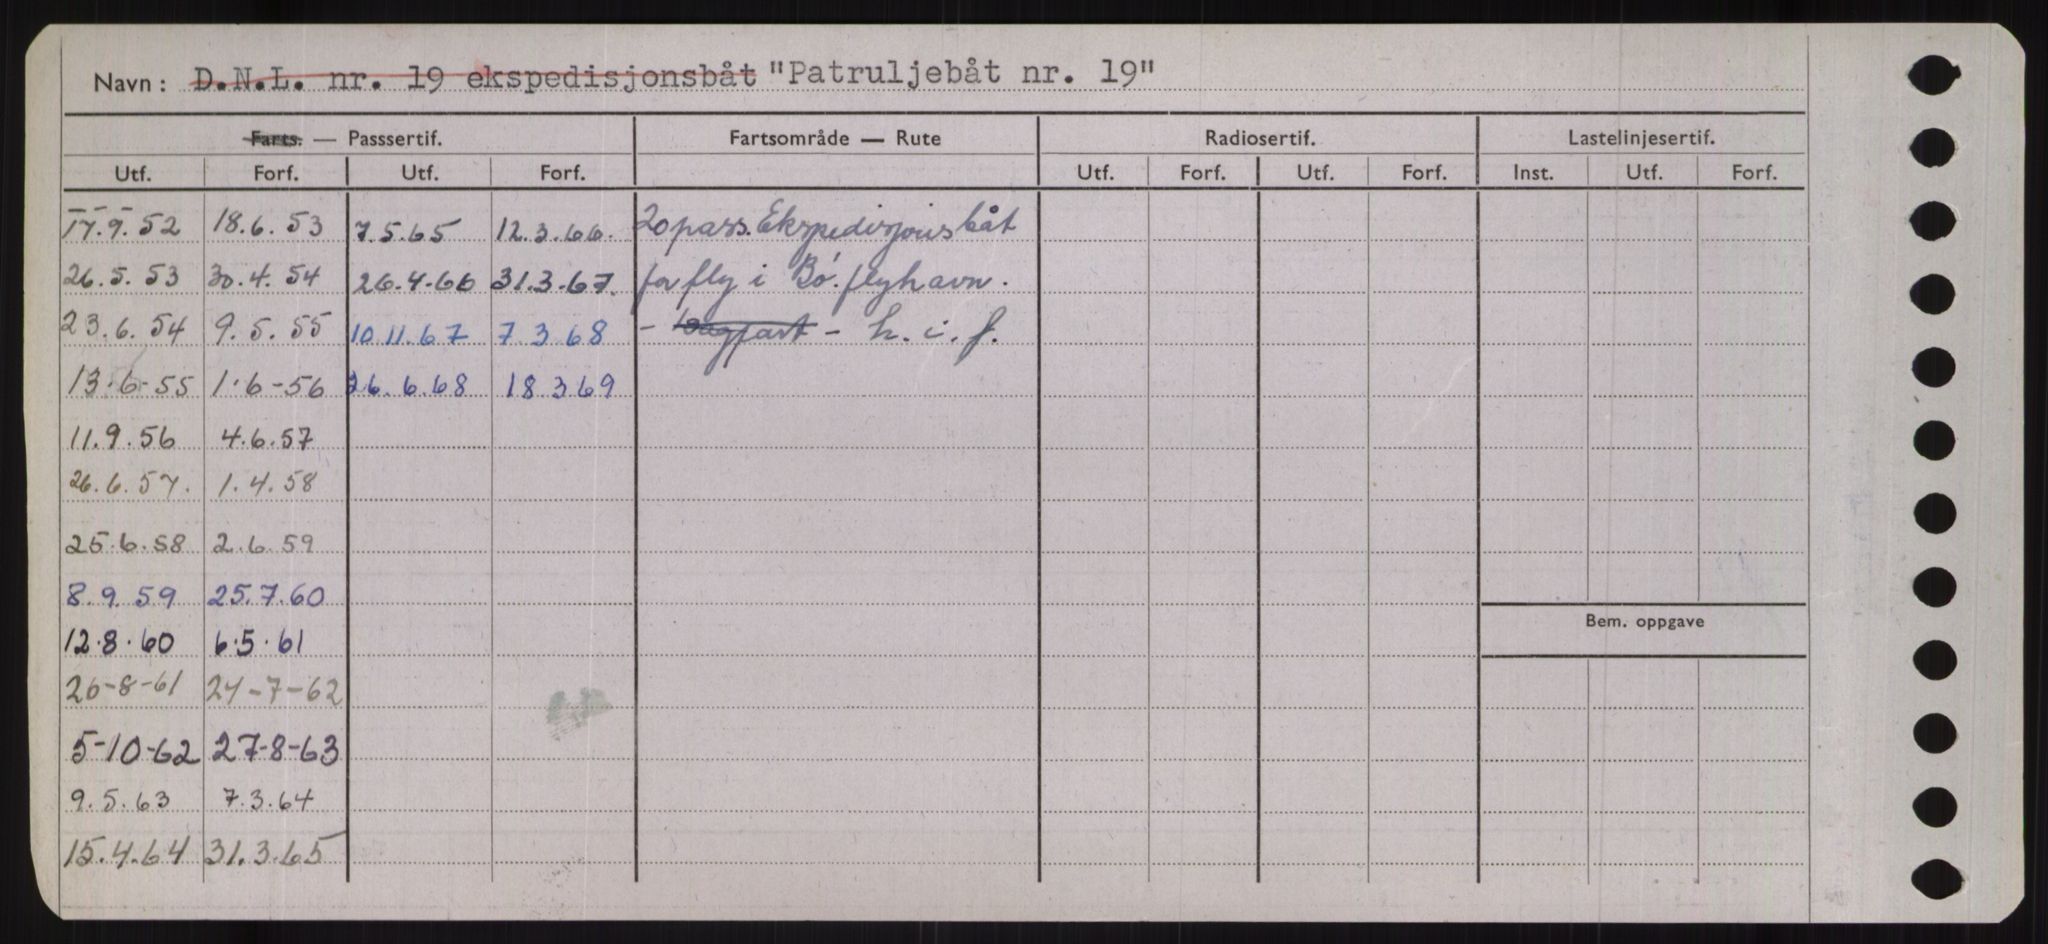 Navn: D.N.L. nr. 19 ekspedisjonsbåt "Patruljebåt nr. 19"
Farts. — Passsertif. Fartsområde — Rute Radiosertif. Lastelinjesertif.
Utf. Forf. Utf. Forf. Utf. Forf. Utf. Forf. Inst. Utf. Forf.
17.9.52 18.6.53 7.5.65 12.3.66. 20 pass. Ekspedisjonsbåt
26.5.53 30.4.54 26.4.66 31.3.67. for fly i Bø. flyhavn.
23.6.54 9.5.55 10.11.67 7 3 68 - - h. i. f.
13-6-55 1-6-56 26.6.68 18 3 69
11.9.56 4.6.57
26.6.57. 1.4.58
25.6.58 2.6.59
8.9.59 25.7.60
12.8.60 6.5.61
Bem. oppgave
26-8-61 24-7-62
5-10-62 27-8-63
9.5.63 7.3.64
15.4.64 31.3.65